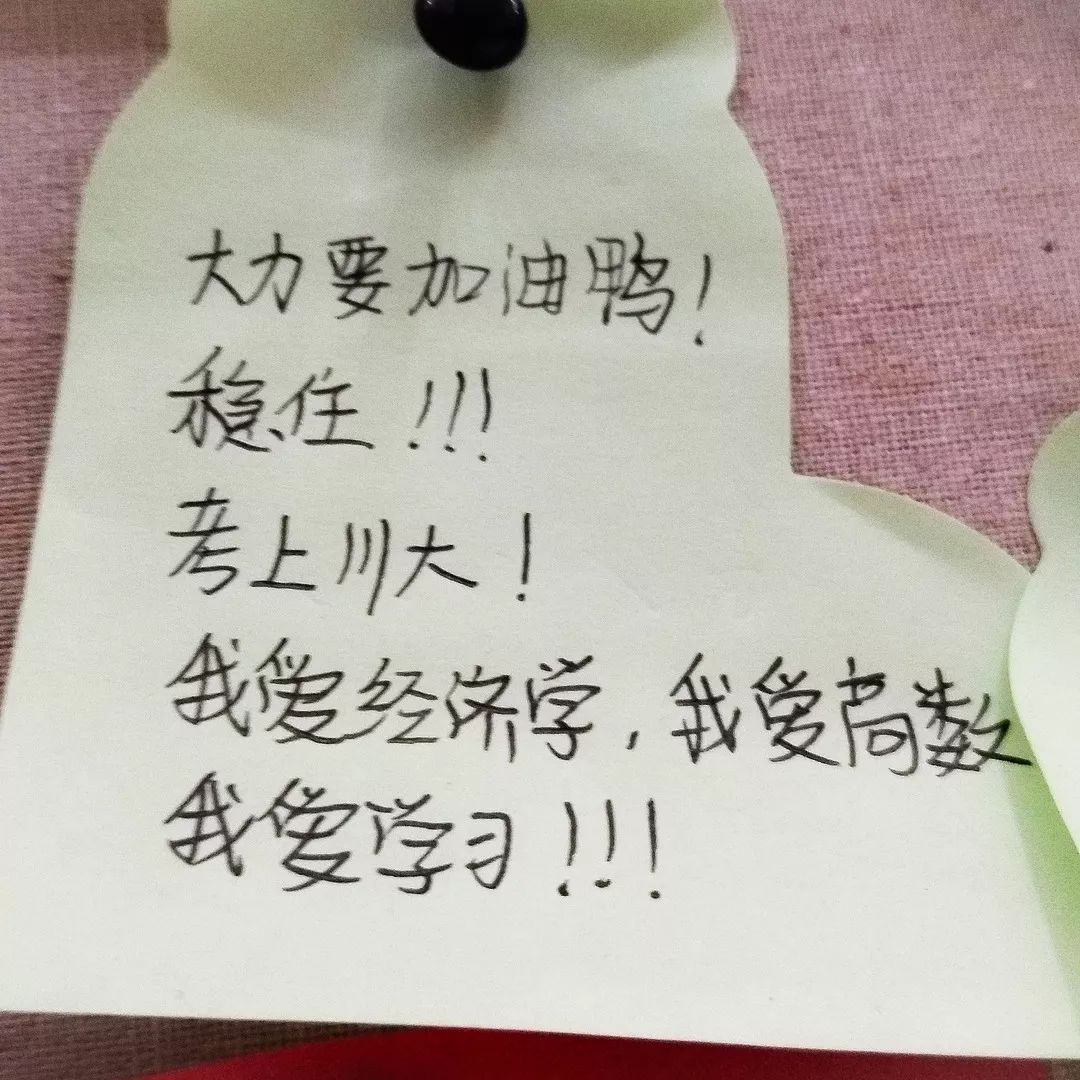 大力要加油鸭!
稳住!!!
考上川大!
我爱经济学,我爱高数
我爱学习!!!